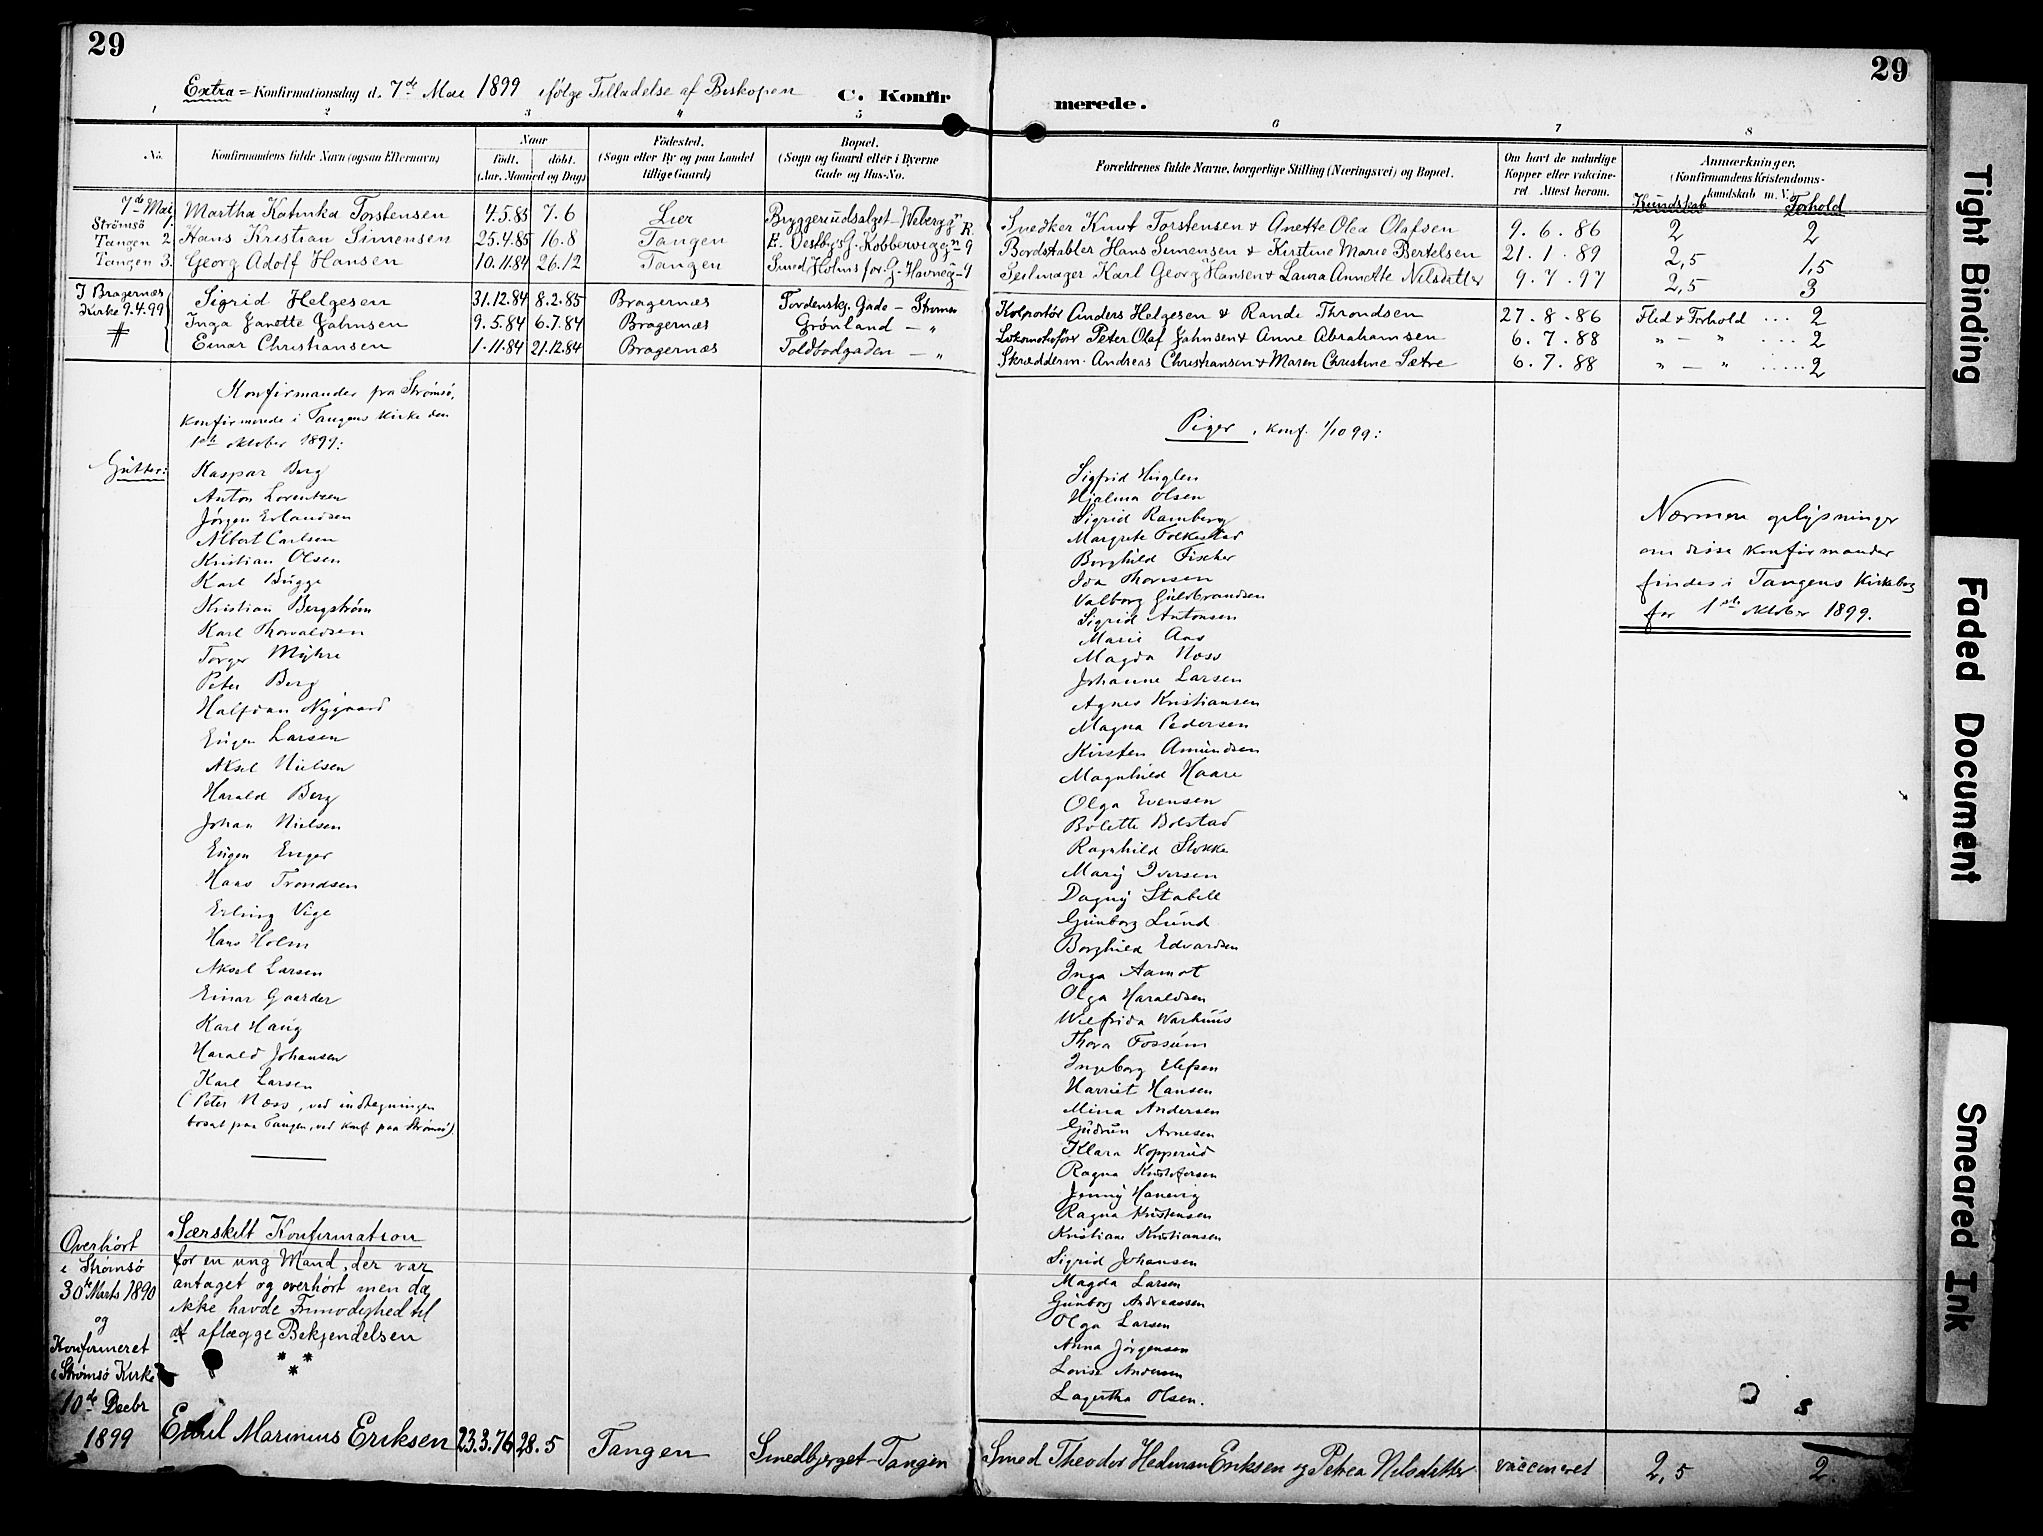 29
29
Extra = Konfirmationsdag d. 7de Mai 1899 ifølge Tilladelse af Biskopen
C. Konfirmerede.
1 2 3 4 5 6 7 8
No.
Konfirmandens fulde Navn (ogsaa Efternavn)
Naar
født. døbt.
(Aar, Maaned og Dag)
Fødested.
(Sogn eller By og paa Landet
tillige Gaard)
Bopæl.
(Sogn og Gaard eller i Byerne
Gade og Hus-No.
Forældrenes fulde Navne, borgerlige Stilling (Næringsvei) og Bopæl.
Om havt de naturlige
Kopper eller vakcine-
ret Attest herom.
Anmærkninger,
(Konfirmandens Kristendoms-
kundskab m. V.)
Kundskab Forhold
7de Mai
Strömsö 1. Martha Katinka Torstensen 4.5.85 7.6 Lier Bryggeriudsalget Snedker Knut Torstensen & Anette Olea Olafsen 9.6.86 2 2
Tangen 2 Hans Kristian Simensen 25.4.85 16.8 Tangen Bordstabler Hans Simensen & Kirstine Marie Bertelsen 21.1.89 2,5 1,5
Tangen 3. Georg Adolf Hansen 10.11.84 26.12 Tangen Seilmager Karl Georg Hansen & Laura Annette Nilsdatter 9.7.97 2,5 3
I Bragernæs
Kirke 9.4.99
#
Sigrid Helgesen 31.12.84 8.2.85 Bragernæs Tordenskj. Gade – Strømsø Kolportør Anders Helgesen & Rande Throndsen 27.8.86 Flid & Forhold ... 2
Inga Janette Jahnsen 9.5.84 6.7.84 Bragernæs Grønland – " Lokomotivfører Peter Olaf Jahnsen & Anne Abrahamsen 6.7.88 " – " .... 2
Einar Christiansen 1.11.84 21.12.84 Bragernæs Toldbodgaden – " Skrædderm. Andreas Christiansen & Maren Christine Sætre 6.7.88 " – " ..... 2
Konfirmander fra Strømsø,
konfirmerede i Tangens Kirke den
1ste oktober 1899:
Gutter:
Kaspar Berg
Anton Lorentzen
Jörgen Erlandsen
Albert Carlsen
Kristian Olsen
Karl Bugge
Kristian Bergström
Karl Thorvaldsen
Torger Myhre
Peter Berg
Halfdan Nygaard
Eugen Larsen
Aksel Nielsen
Harald Berg
Johan Nielsen
Eugen Enger
Hans Trondsen
Erling Vige
Hans Holm
Aksel Larsen
Einar Gaarder
Karl Haug
Harald Johansen
Karl Larsen
(Peter Næss, ved indtegningen
bosat paa Tangen, ved konf paa Strømsø)
Piger, konf. 1/10 99:
Sigfrid Huglen
Hjalma Olsen
Sigrid Ramberg
Margrete Folkestad
Borghild Fischer
Ida Thoresen
Valborg Guldbrandsen
Sigrid Antonsen
Marie Aas
Magda Moss
Johanne Larsen
Agnes Kristiansen
Magna Pedersen
Kirsten Amundsen
Magnhild Haare
Olga Evensen
Bolette Bolstad
Ragnhild Stokke
Mary Iversen
Dagny Stabell
Gunborg Lund
Borghild Edvardsen
Inga Aamot
Olga Haraldsen
Wilfrida Warhuus
Thora Fossum
Ingeborg Elefsen
Harriet Hansen
Mina Andersen
Gudrun Arnesen
Klara Kopperud
Ragna Kristofersen
Jenny Hanevig
Ragna Kristensen
Kristiane Kristiansen
Sigrid Johansen
Magda Larsen
Gunborg Andreassen
Olga Larsen
Anna Jörgensen
Lovise Andersen
Lagertha Olsen.
Nærmere oplysninger
om disse konfirmander
findes i Tangens Kirkebog
for 1ste oktober 1899.
Overhört
i Strömsö
30te Marts 1890
og
Konfirmeret
i Strömsö Kirke
10de Decbr
1899
Særskilt Konfirmation
for en ung Mand, der var
antaget og overhört men da
ikke havde Frimodighed til
at aflægge Bekjendelsen
Emil Marinius Eriksen 23.3.76 28.5 Tangen Smedbjerget–Tangen Smed Theodor Hedman Eriksen og Petrea Nilsdatter vaccineret 2,5 2.
Tight Binding
Faded Document
Smeared Ink